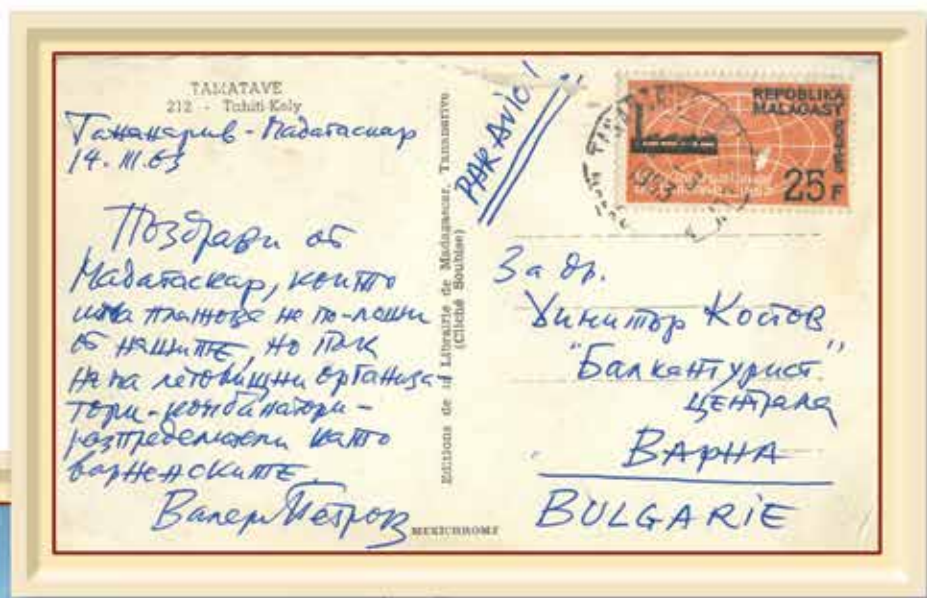 TAMATAVE
212 - Tahiti-Kely
Тананарив - Мадагаскар
14. III. 63
Поздрави от
Мадагаскар, който
има плажове не по-лоши
от нашите, но пък
няма летовищни организа-
тори-комбинатори-
разпределители като
варненските.
Валери Петров
Editions de la Librairie de Madagascar, Tananarive
(Cliché Soubise)
MEXICHROME
PAR AVION!
REPOBLIKA
MALAGASY
25 F
1963
За др.
Димитър Костов
"Балкантурист"
централа
ВАРНА
BULGARIE